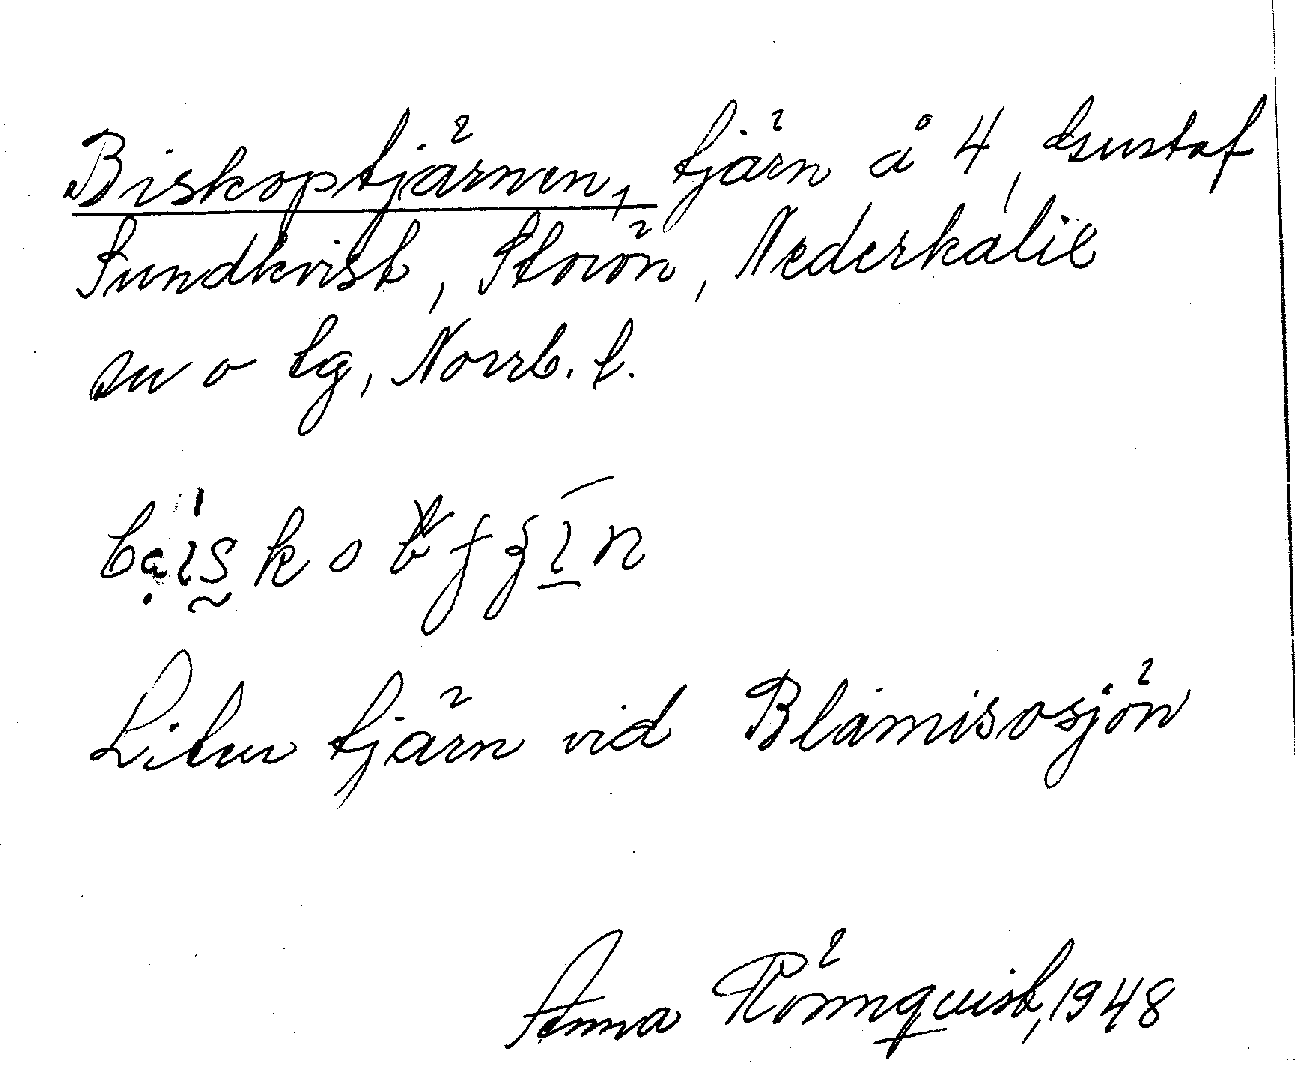 Biskoptjärnen, tjärn å 4, Gustaf
Sundkvist, Storön, Nederkalix
sn o tg, Norrb. l.
Liten tjärn vid Blåmisosjön
Anna Rönnquist, 1948